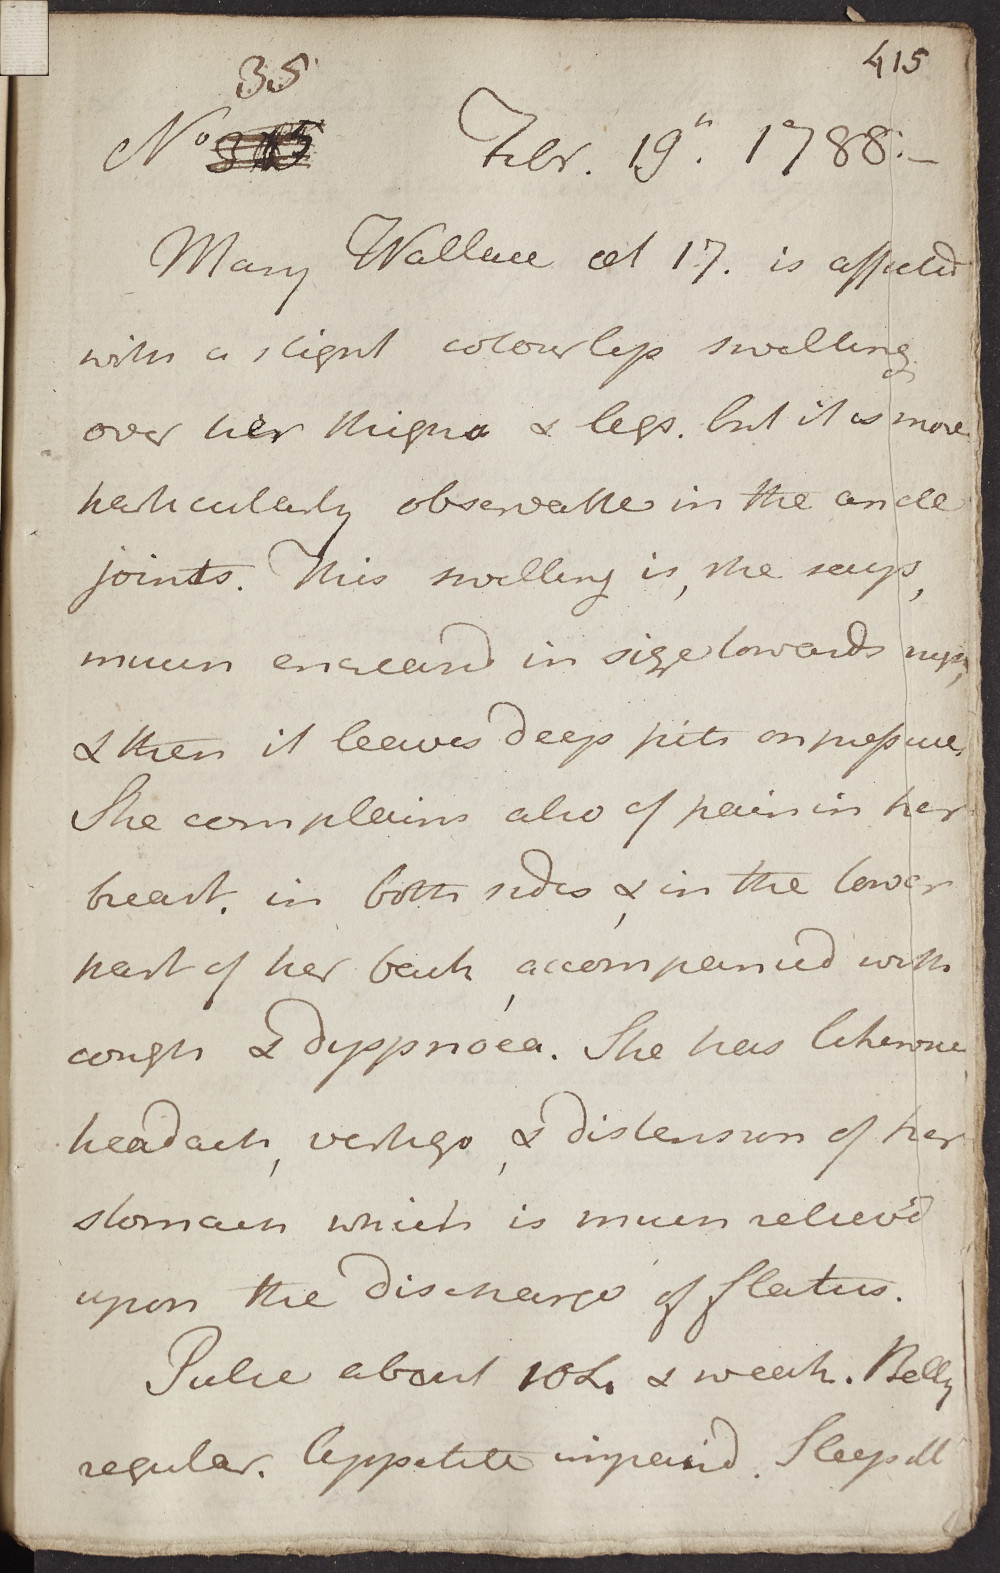 415
35
No Febr. 19th. 1788.—
Mary Wallace æt 17. is affected
with a slight colourless swelling
over her thighs & legs. but it is more
particularly observable in the ancle
joints. This swelling is, she says,
much encreasd in size towards night,
& then it leaves deep pits on pressure.
She complains also of pain in her
breast, in both sides, & in the lower
part of her back, accompanied with
cough & dyspnoea. She has likewise
headach, vertigo, & distension of her
stomach which is much reliev'd
upon the discharge of flatus.
Pulse about 102. & weak. Belly
regular. Appetite impair'd. Sleeps ill